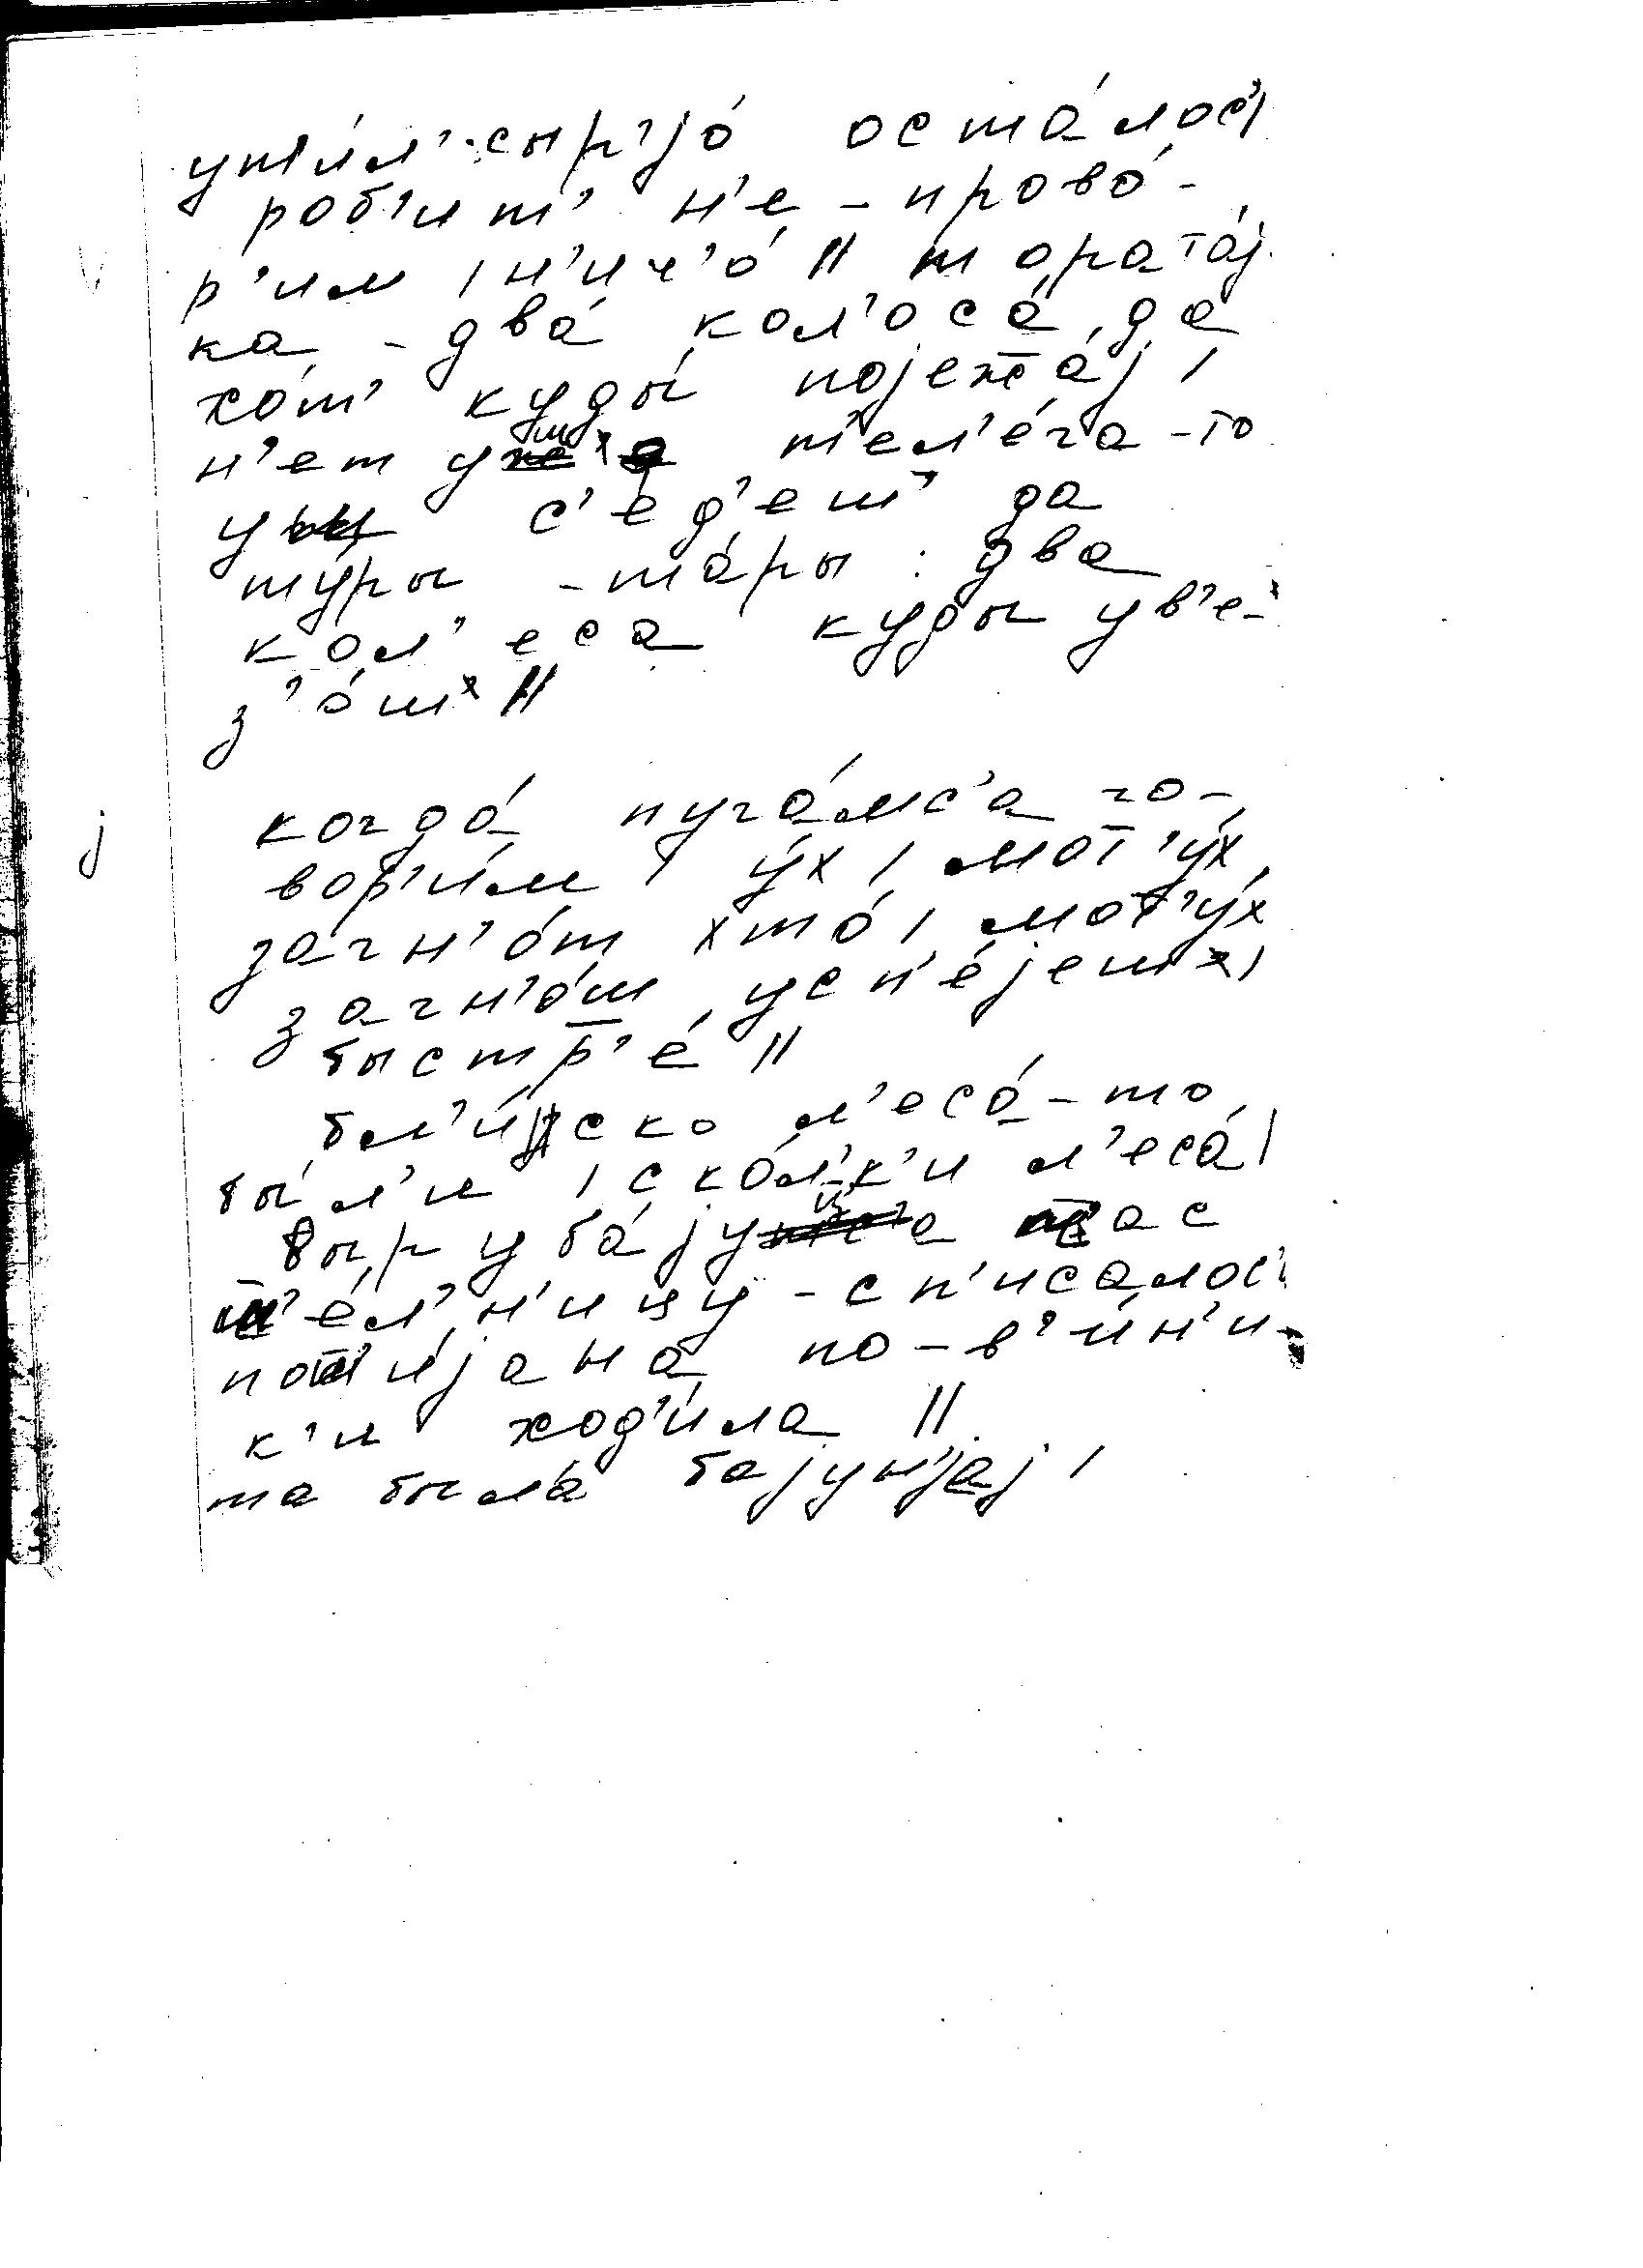 ути́л'·сыр'jо́ оста́лос'|
роб'ит' н'е-прово́-
р'им | н'ич'о́ || тората́j
ка - два́ кол'оса́ да
хо́т' куды́ поjежа́j |
н'ет уш т'ел'е́га-то
у с'е́д'еш да
ту́ры-та́ры: два
кол'еса куды ув'е-
з'о́ш ||
когда́ пуга́мс'а го-
вор'и́м | у́х | мот'у́х
загн'о́т хто́ | мот'у́х
загн'о́ш усп'е́jеш |
быстр'е́ ||
j
бл'и́ско л'еса́-то
бы́л'и | ско́л'к'и л'еса́ |
выруба́jуца щас
т'е́л'н'ицу - сп'исалос'
пот'иjана по-в'и́н'и-
к'и ход'и́ла ||
та была́ баjун'jаj |